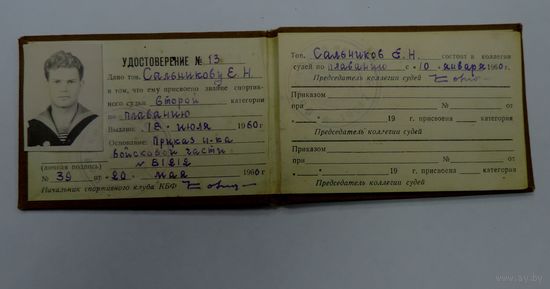 УДОСТОВЕРЕНИЕ № 13
Дано тов. Сальникову Е. Н.
в том, что ему присвоено звание спортив-
ного судьи второй категории
по плаванию
Выдано „18" июля 1960 г.
Основание: Приказ н-ка
войсковой части
(личная подпись) № 81212
№ 39 от „20" мая 1960 г.
Начальник спортивного клуба КБФ
Тов. Сальников Е. Н. состоит в коллегии
судей по плаванию с „10" января 1960 г.
Председатель коллегии судей
Приказом
при № от
„ " 19 г. присвоена категория
Председатель коллегии судей
Приказом
при № от
„ " 19 г. присвоена категория
Председатель коллегии судей
www.ay.by